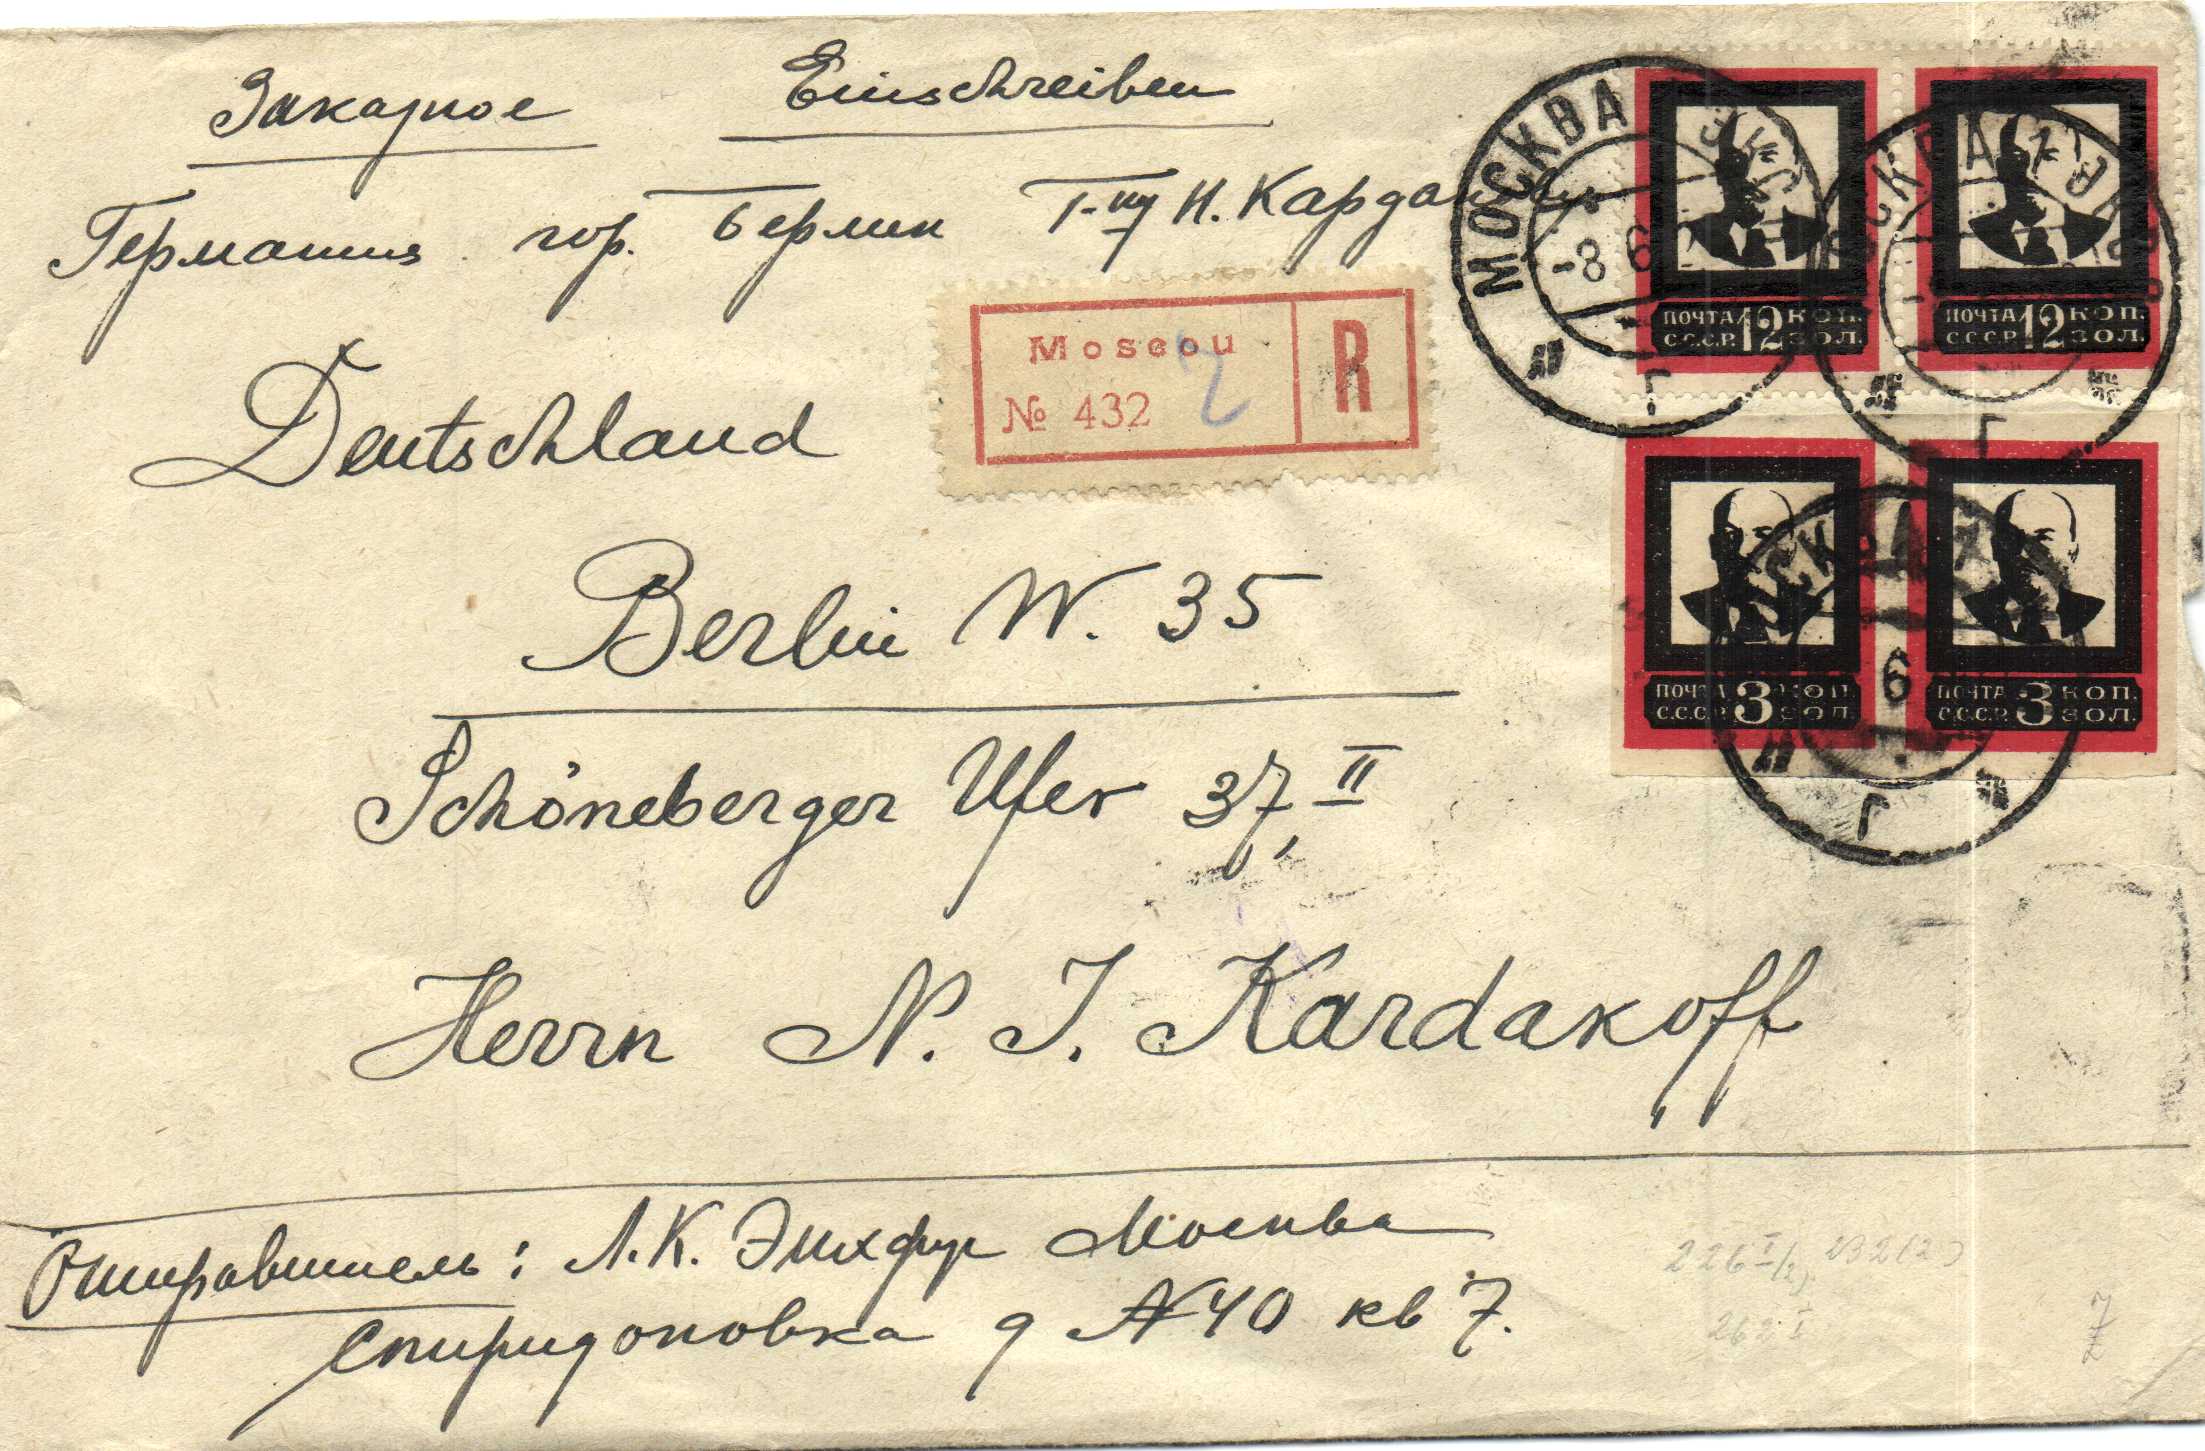 Заказное Einschreiben
Германия гор. Берлин Г-ну Н. Кардакову
Moscou
№ 432
R
2
Deutschland
Berlin W. 35
Schöneberger Ufer 37, II
Herrn N. I. Kardakoff
Отправитель: Л. К. Москва
Спиридоновка д № 40 кв 7.
МОСКВА
-8 6
Г
ПОЧТА 12 КОП.
С.С.С.Р. ЗОЛ.
ПОЧТА 12 КОП.
С.С.С.Р. ЗОЛ.
ПОЧТА 3 КОП.
С.С.С.Р. ЗОЛ.
ПОЧТА 3 КОП.
С.С.С.Р. ЗОЛ.
6
Г
262 I
7